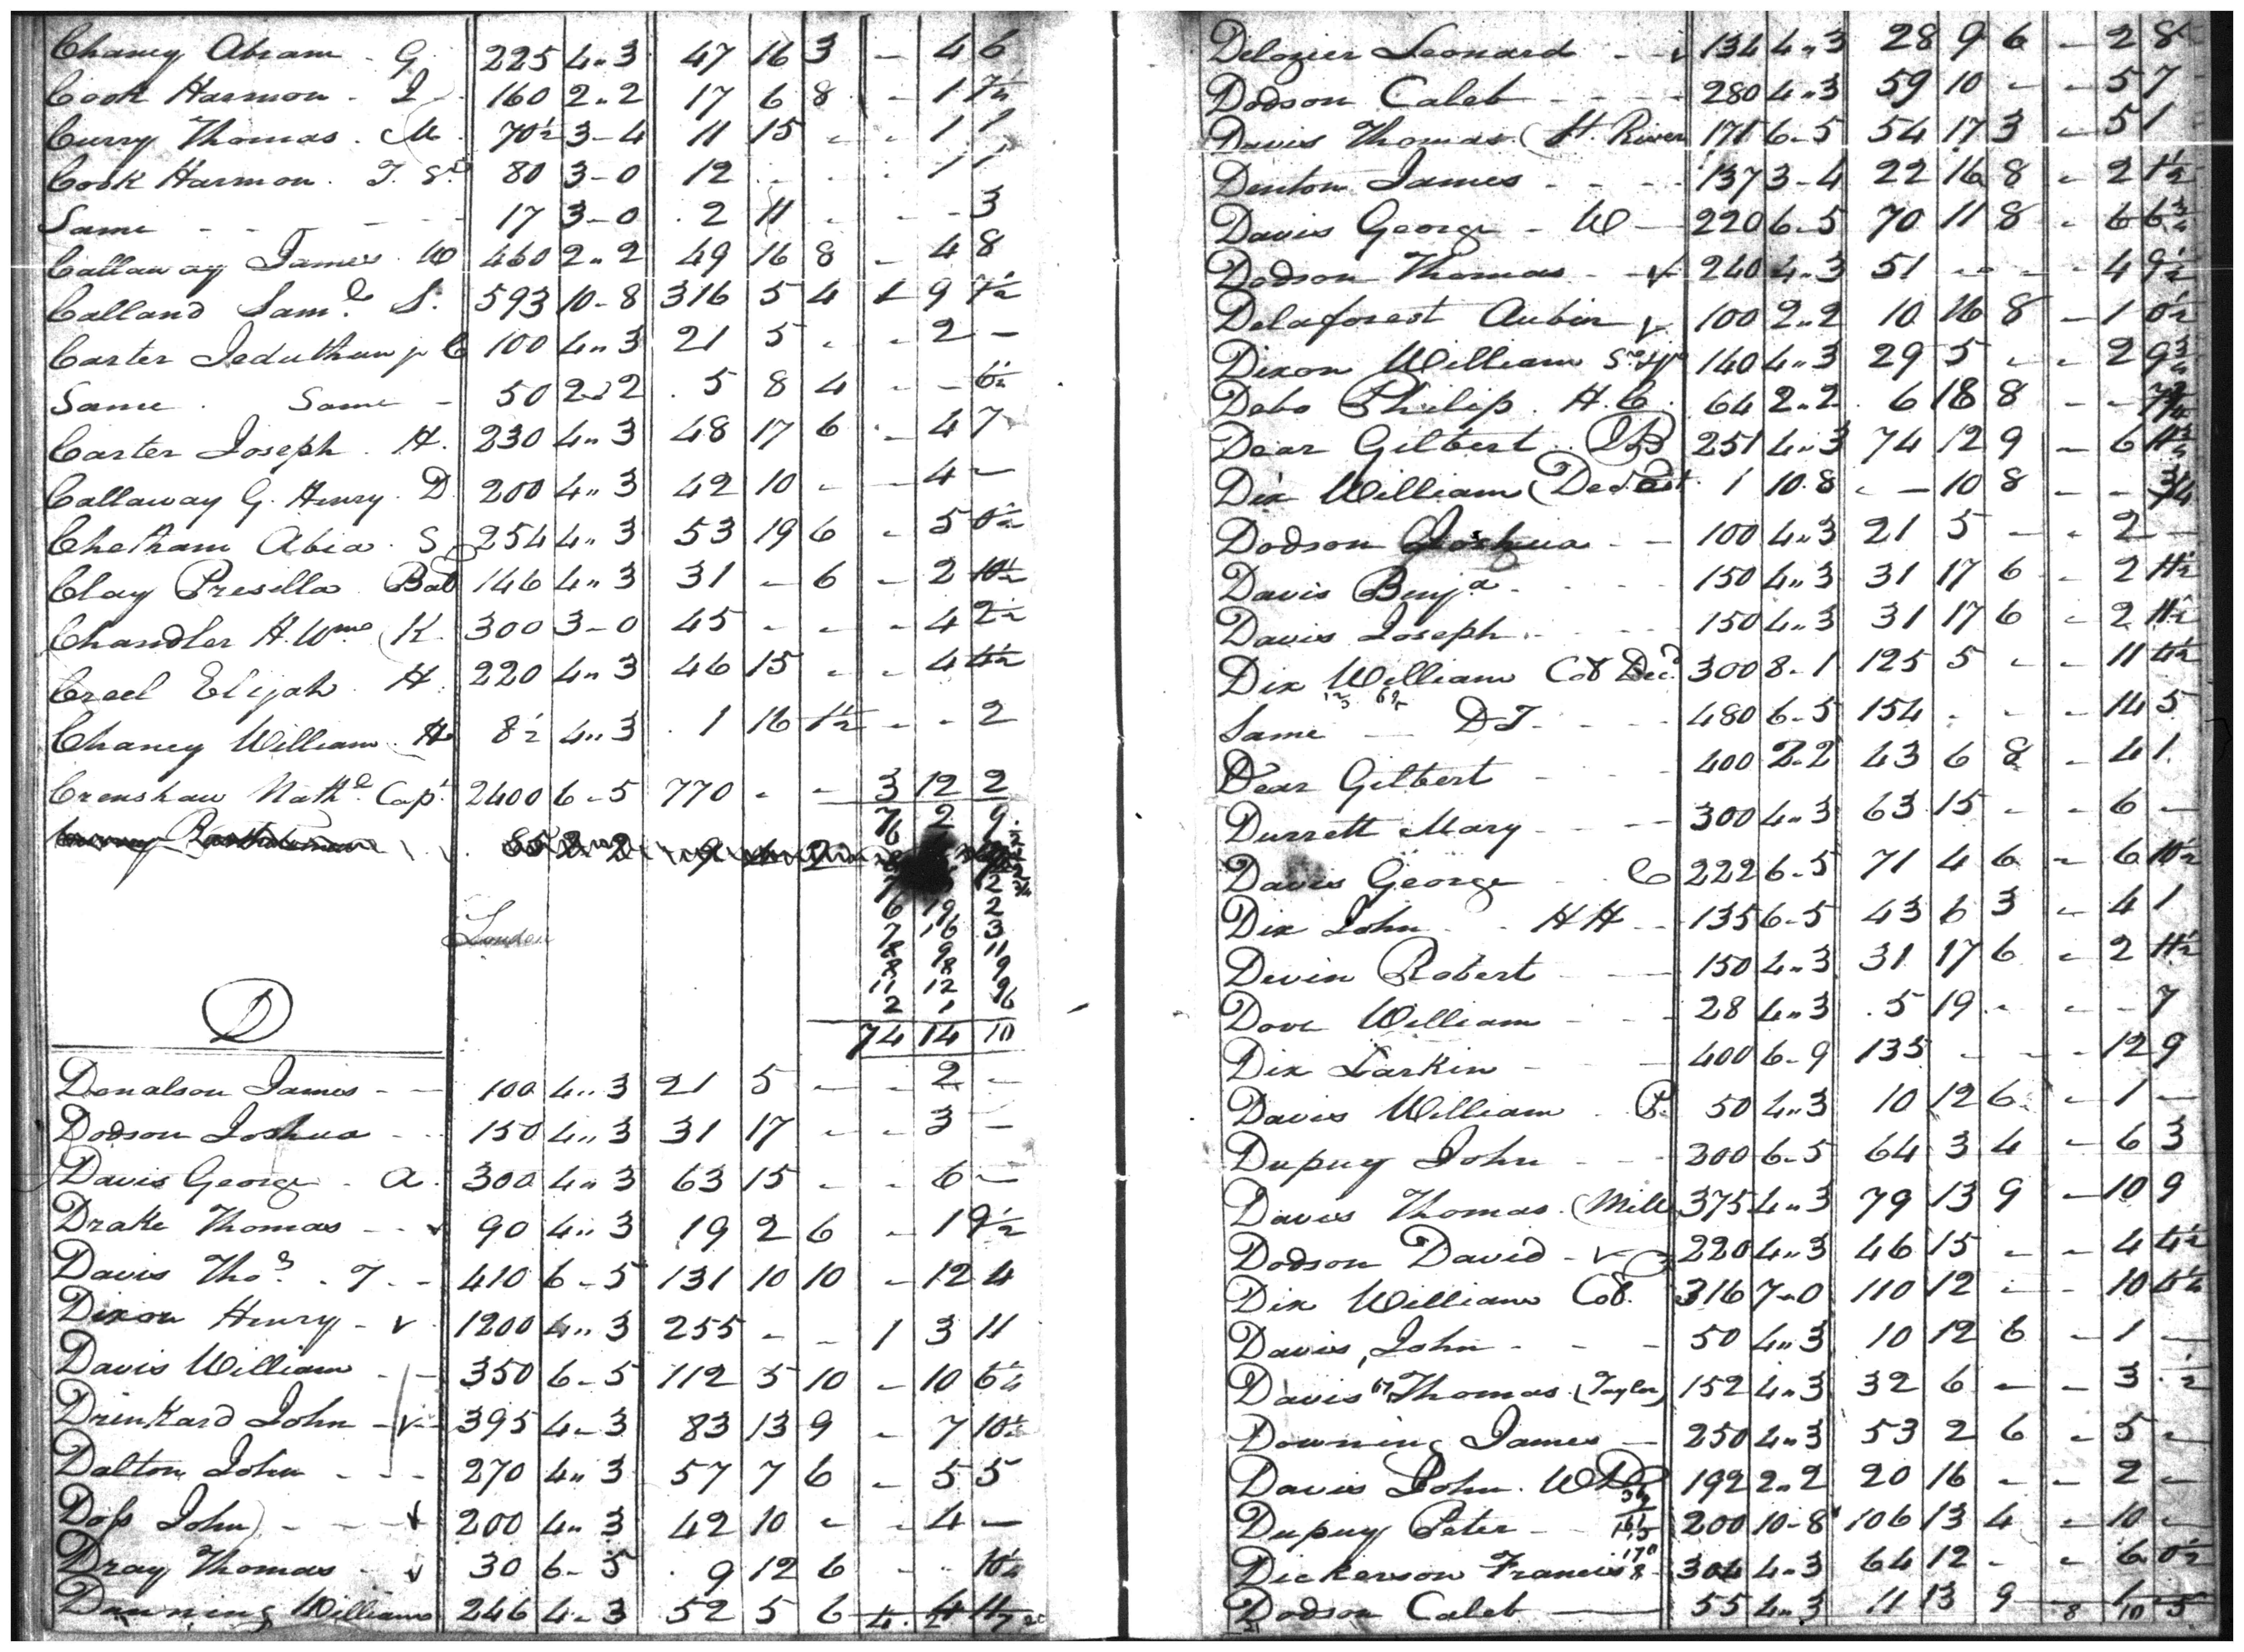 Chaney Abram - G. 225 4"3 47 16 3 - 4 6
Cook Harmon - I 160 2"2 17 6 8 - 1 7½
Curry Thomas. M. 70½ 3-4 11 15 - - 1 1
Cook Harmon. T. Sr 80 3-0 12 - - - 1 1
Same - - - 17 3-0 2 11 - - - 3
Callaway James. W 460 2"2 49 16 8 - 4 8
Calland Saml. S. 593 10-8 316 5 4 1 9 7½
Carter Jeduthun jr C 100 4"3 21 5 - - 2 -
Same. Same - 50 2"2 5 8 4 - - 6½
Carter Joseph. H. 230 4"3 48 17 6 - 4 7
Callaway G. Henry. D 200 4"3 42 10 - - 4 -
Chetham Abia. S 254 4"3 53 19 6 - 5 0½
Clay Presilla. Bab 146 4"3 31 - 6 - 2 10½
Chandler H. Wm (K. 300 3-0 45 - - - 4 2½
Creel Elijah. H. 220 4"3 46 15 - - 4 4½
Chaney William. H 8½ 4"3 1 16 1½ - - 2
Crenshaw Nathl. Capt. 2400 6-5 770 - - 3 12 2
7 2 9
6 19 2
7 16 3
8 9 11
8 8 9
11 12 9
2 1 6
74 14 10
London
D
Donalson James - 100 4"3 21 5 - - 2 -
Dodson Joshua - 150 4"3 31 17 - - 3 -
Davis George - A. 300 4"3 63 15 - - 6 -
Drake Thomas - 90 4"3 19 2 6 - 1 9½
Davis Thos. T. 410 6-5 131 10 10 - 12 4
Dixon Henry - v 1200 4"3 255 - - 1 3 11
Davis William - 350 6-5 112 5 10 - 10 6¼
Drinkard John - v - 395 4-3 83 13 9 - 7 10½
Dalton John - - 270 4"3 57 7 6 - 5 5
Doss John - - 200 4"3 42 10 - - 4 -
Dray Thomas - 30 6-5 9 12 6 - - 10¼
Drunning William 246 4-3 52 5 6 4 11
4. 2 7
Delozier Leonard - v 134 4"3 28 9 6 - 2 8
Dodson Caleb - - - 280 4"3 59 10 - - 5 7
Davis Thomas (St. River 171 6-5 54 17 3 - 5 1
Denton James - - - 137 3-4 22 16 8 - 2 1½
Davis George - W - 220 6-5 70 11 8 - 6 6¾
Dodson Thomas - v 240 4"3 51 - - - 4 9½
Delaforest Aubin v. 100 2"2 10 16 8 - 1 0½
Dixon William 140 4"3 29 5 - - 2 9¾
Debo Philip. H. C. 64 2"2 6 18 8 - - 7¾
Dear Gilbert. IB 251 4"3 74 12 9 - 6 11¾
Dix William (Decd est. 1 10.8 - 10 8 - - ¾
Dodson Joshua - - 100 4"3 21 5 - - 2 -
Davis Benja. - - 150 4"3 31 17 6 - 2 11½
Davis Joseph. - 150 4"3 31 17 6 - 2 11½
Dix William Col Decd. 300 8-1 125 5 - - 11 4½
Same - DT. - - 480 6-5 154 - - - 14 5
Dear Gilbert - - 400 2-2 43 6 8 - 4 1
Durrett Mary - - 300 4"3 63 15 - - 6 -
Davis George - C 222 6-5 71 4 6 - 6 10½
Dix John - HH - 135 6-5 43 6 3 - 4 1
Devin Robert - 150 4"3 31 17 6 - 2 11½
Dove William - - 28 4"3 5 19 - - - 7
Dix Larkin - - 400 6-9 135 - - - 12 9
Davis William. P. 50 4"3 10 12 6 - 1 -
Dupuy John - - 200 6-5 64 3 4 - 6 3
Davis Thomas. (Mill 375 4"3 79 13 9 - 10 9
Dodson David - v 220 4"3 46 15 - - 4 4½
Dix William Col. 316 7-0 110 12 - - 10 4¼
Davis John - - 50 4"3 10 12 6 - 1 -
Davis Thomas. (Taylor) 152 4"3 32 6 - - 3 ½
Downing James - 250 4"3 53 2 6 - 5 -
Davis John. W 192 2"2 20 16 - - 2 -
Dupuy Peter - 200 10-8 106 13 4 - 10 -
Dickerson Francis 304 4"3 64 12 - - 6 0½
Dodson Caleb - 55 4"3 11 13 9 1
8 10 5